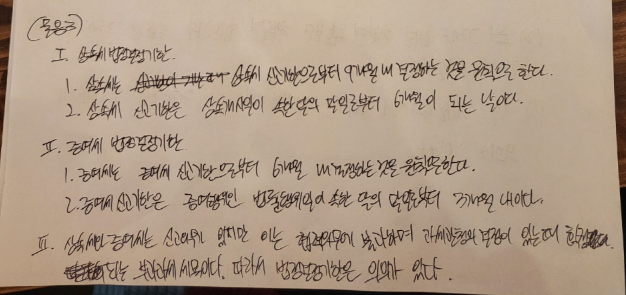 (풀용3)
I. 상속세 법정결정기한
1. 상속세는 상속세 신고기한으로부터 9개월 내 결정하는 것을 원칙으로 한다.
2. 상속세 신고기한은 상속개시일이 속한 달의 말일로부터 6개월이 되는 날이다.
II. 증여세 법정결정기한
1. 증여세는 증여세 신고기한으로부터 6개월 내 결정하는 것을 원칙으로 한다.
2. 증여세 신고기한은 증여행위인 법률행위일이 속한 달의 말일로부터 3개월 내이다.
III. 상속세와 증여세는 신고의무가 있지만 이는 협력의무에 불과하며 과세관청의 결정이 있는 때 확정
되는 부과과세 세목이다. 따라서 법정결정기한은 의의가 있다.